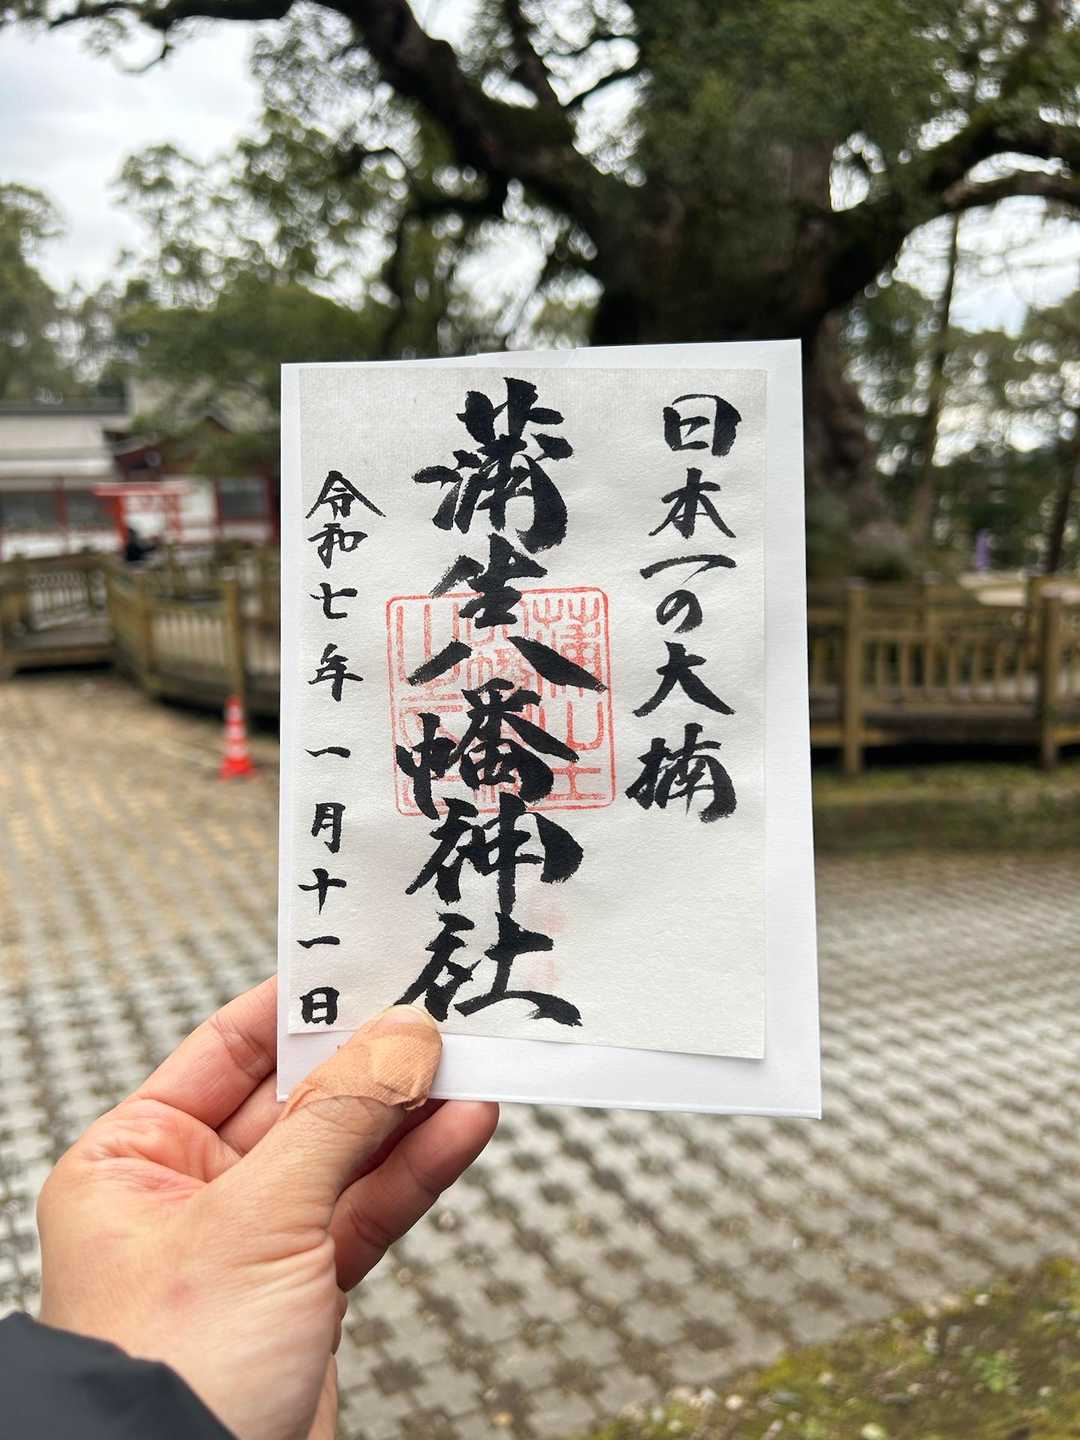 日本一の大楠
蒲生八幡神社
令和七年一月十一日